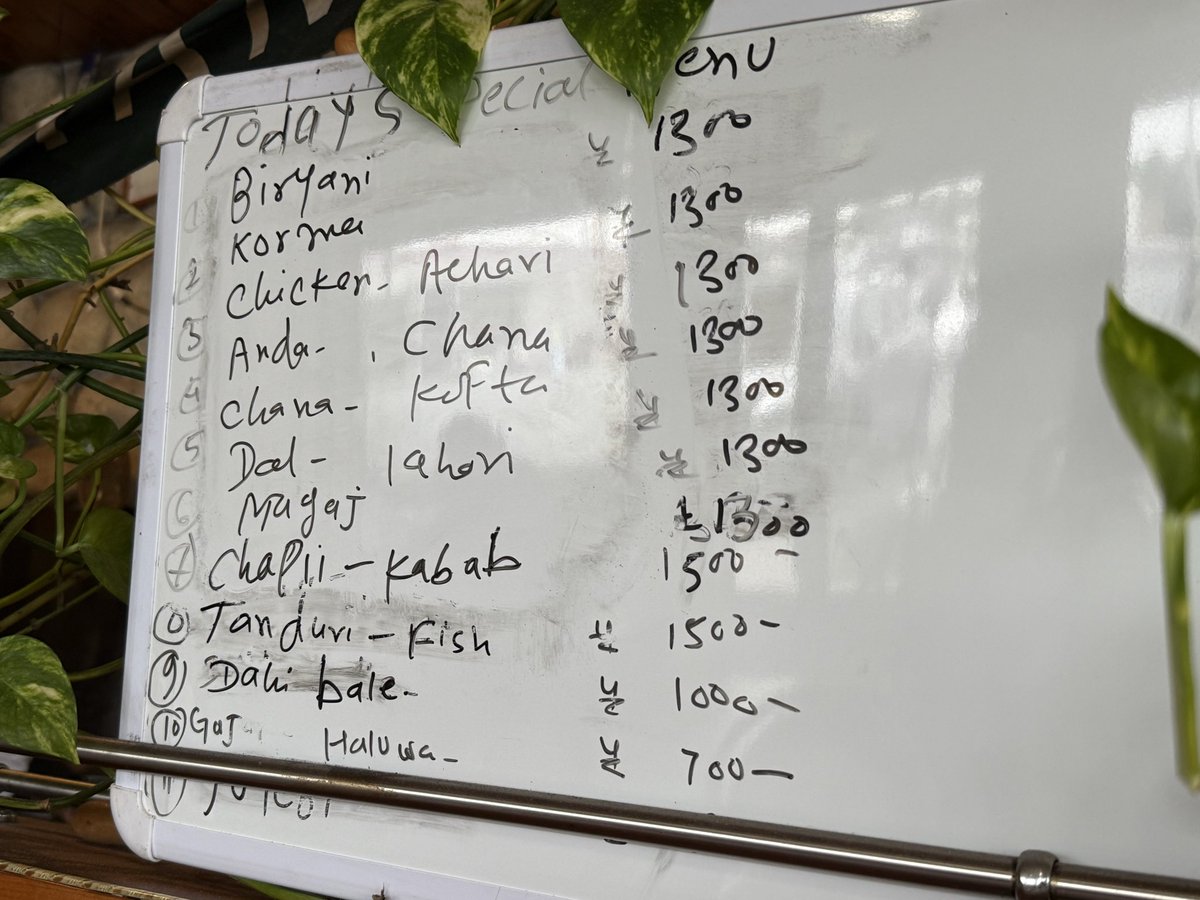 TodayS pecial enu
Biryani ¥ 1300
1 Korma ¥ 1300
2 Chicken- Achari 1300
3 Anda- Chana ¥ 1300
4 Chana- Kofta ¥ 1300
5 Dal- lahori ¥ 1300
6 Magaj ¥ 1300
7 Chaplii- Kabab 1500-
8 Tanduri- Fish ¥ 1500-
9 Dahi bale- ¥ 1000-
10 Gaj Haluwa- ¥ 700-
11